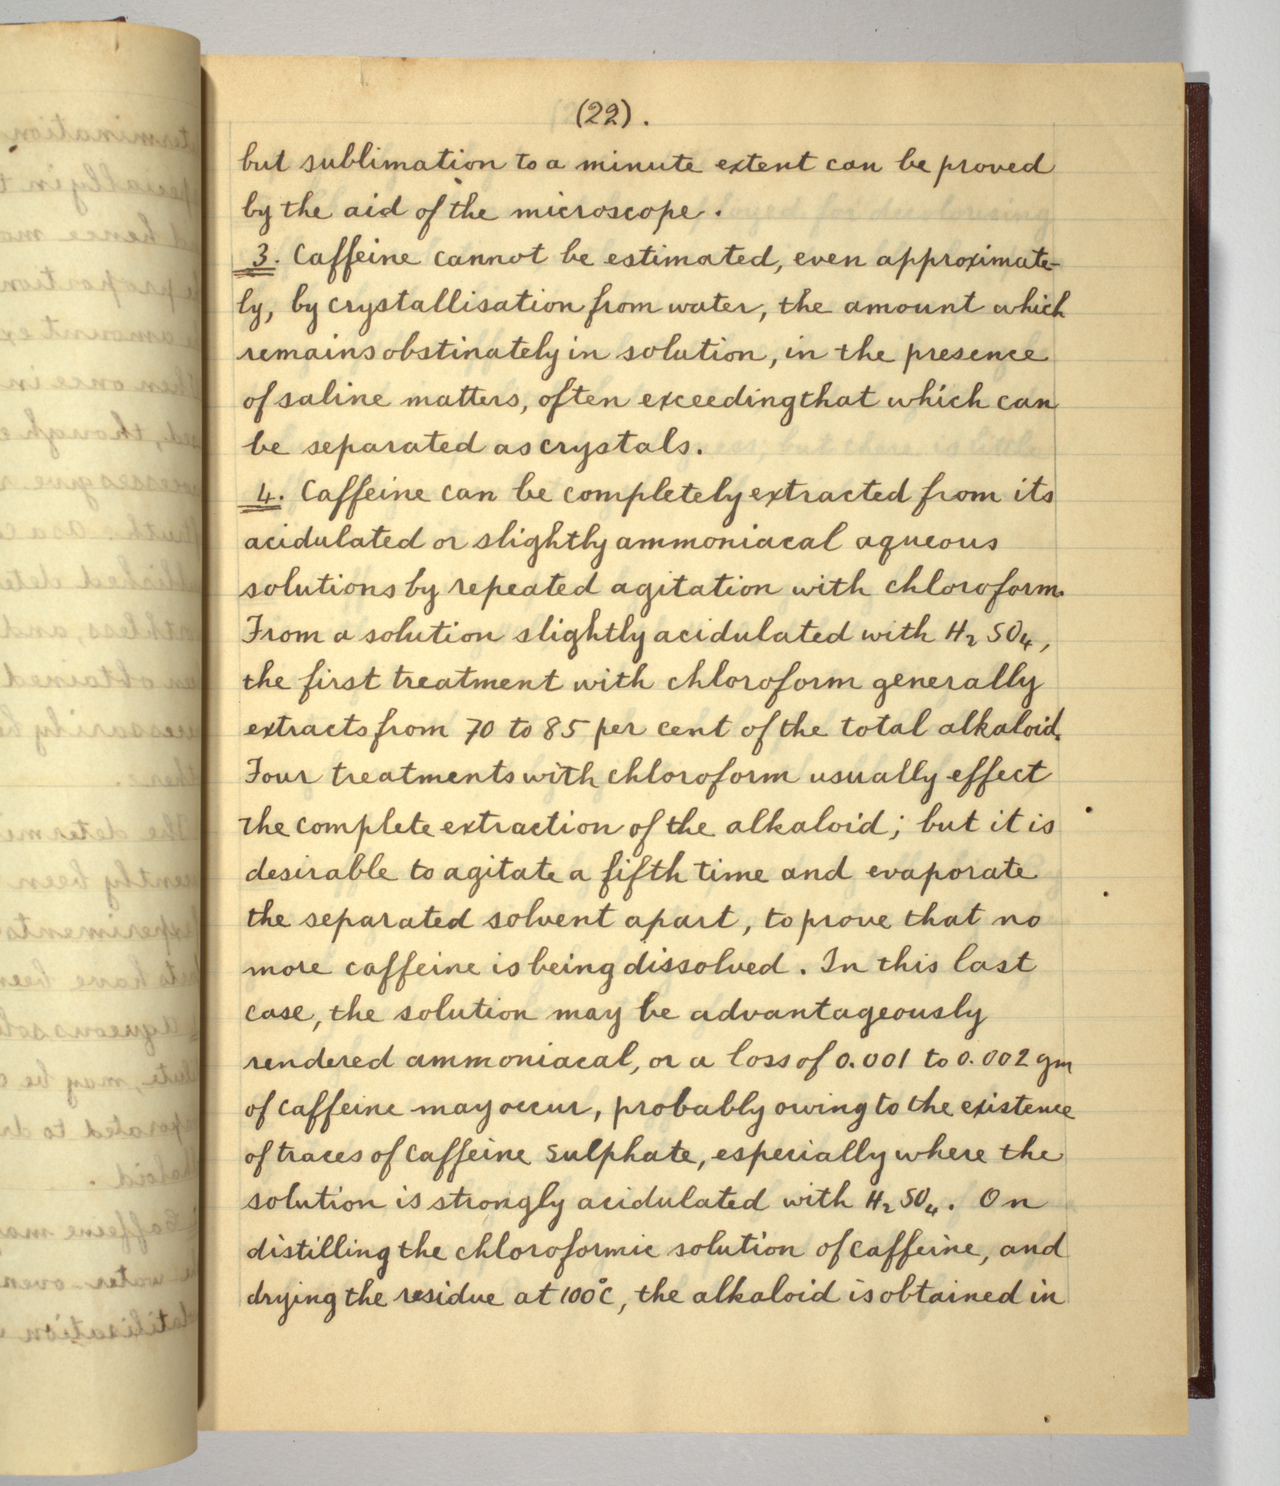 (22).
but sublimation to a minute extent can be proved
by the aid of the microscope.
3. Caffeine cannot be estimated, even approximate-
ly, by crystallisation from water, the amount which
remains obstinately in solution, in the presence
of saline matters, often exceeding that which can
be separated as crystals.
4. Caffeine can be completely extracted from its
acidulated or slightly ammoniacal aqueous
solutions by repeated agitation with chloroform.
From a solution slightly acidulated with H₂SO₄,
the first treatment with chloroform generally
extracts from 70 to 85 per cent of the total alkaloid.
Four treatments with chloroform usually effect
the complete extraction of the alkaloid; but it is
desirable to agitate a fifth time and evaporate
the separated solvent apart, to prove that no
more caffeine is being dissolved. In this last
case, the solution may be advantageously
rendered ammoniacal, or a loss of 0.001 to 0.002 gm
of caffeine may occur, probably owing to the existence
of traces of caffeine sulphate, especially where the
solution is strongly acidulated with H₂SO₄. On
distilling the chloroformic solution of caffeine, and
drying the residue at 100°C, the alkaloid is obtained in